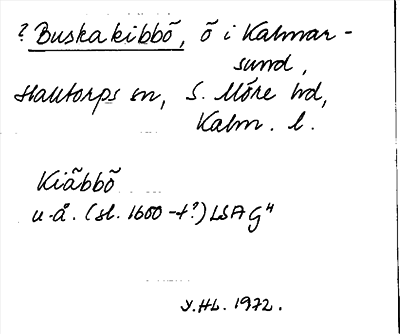 ? Buskakibbö, ö i Kalmar-
sund,
Halltorps sn, S. Möre hd,
Kalm. l.
Kiäbbö
u.å. (sl. 1600-t?) LSA G4
Y.HL. 1972.